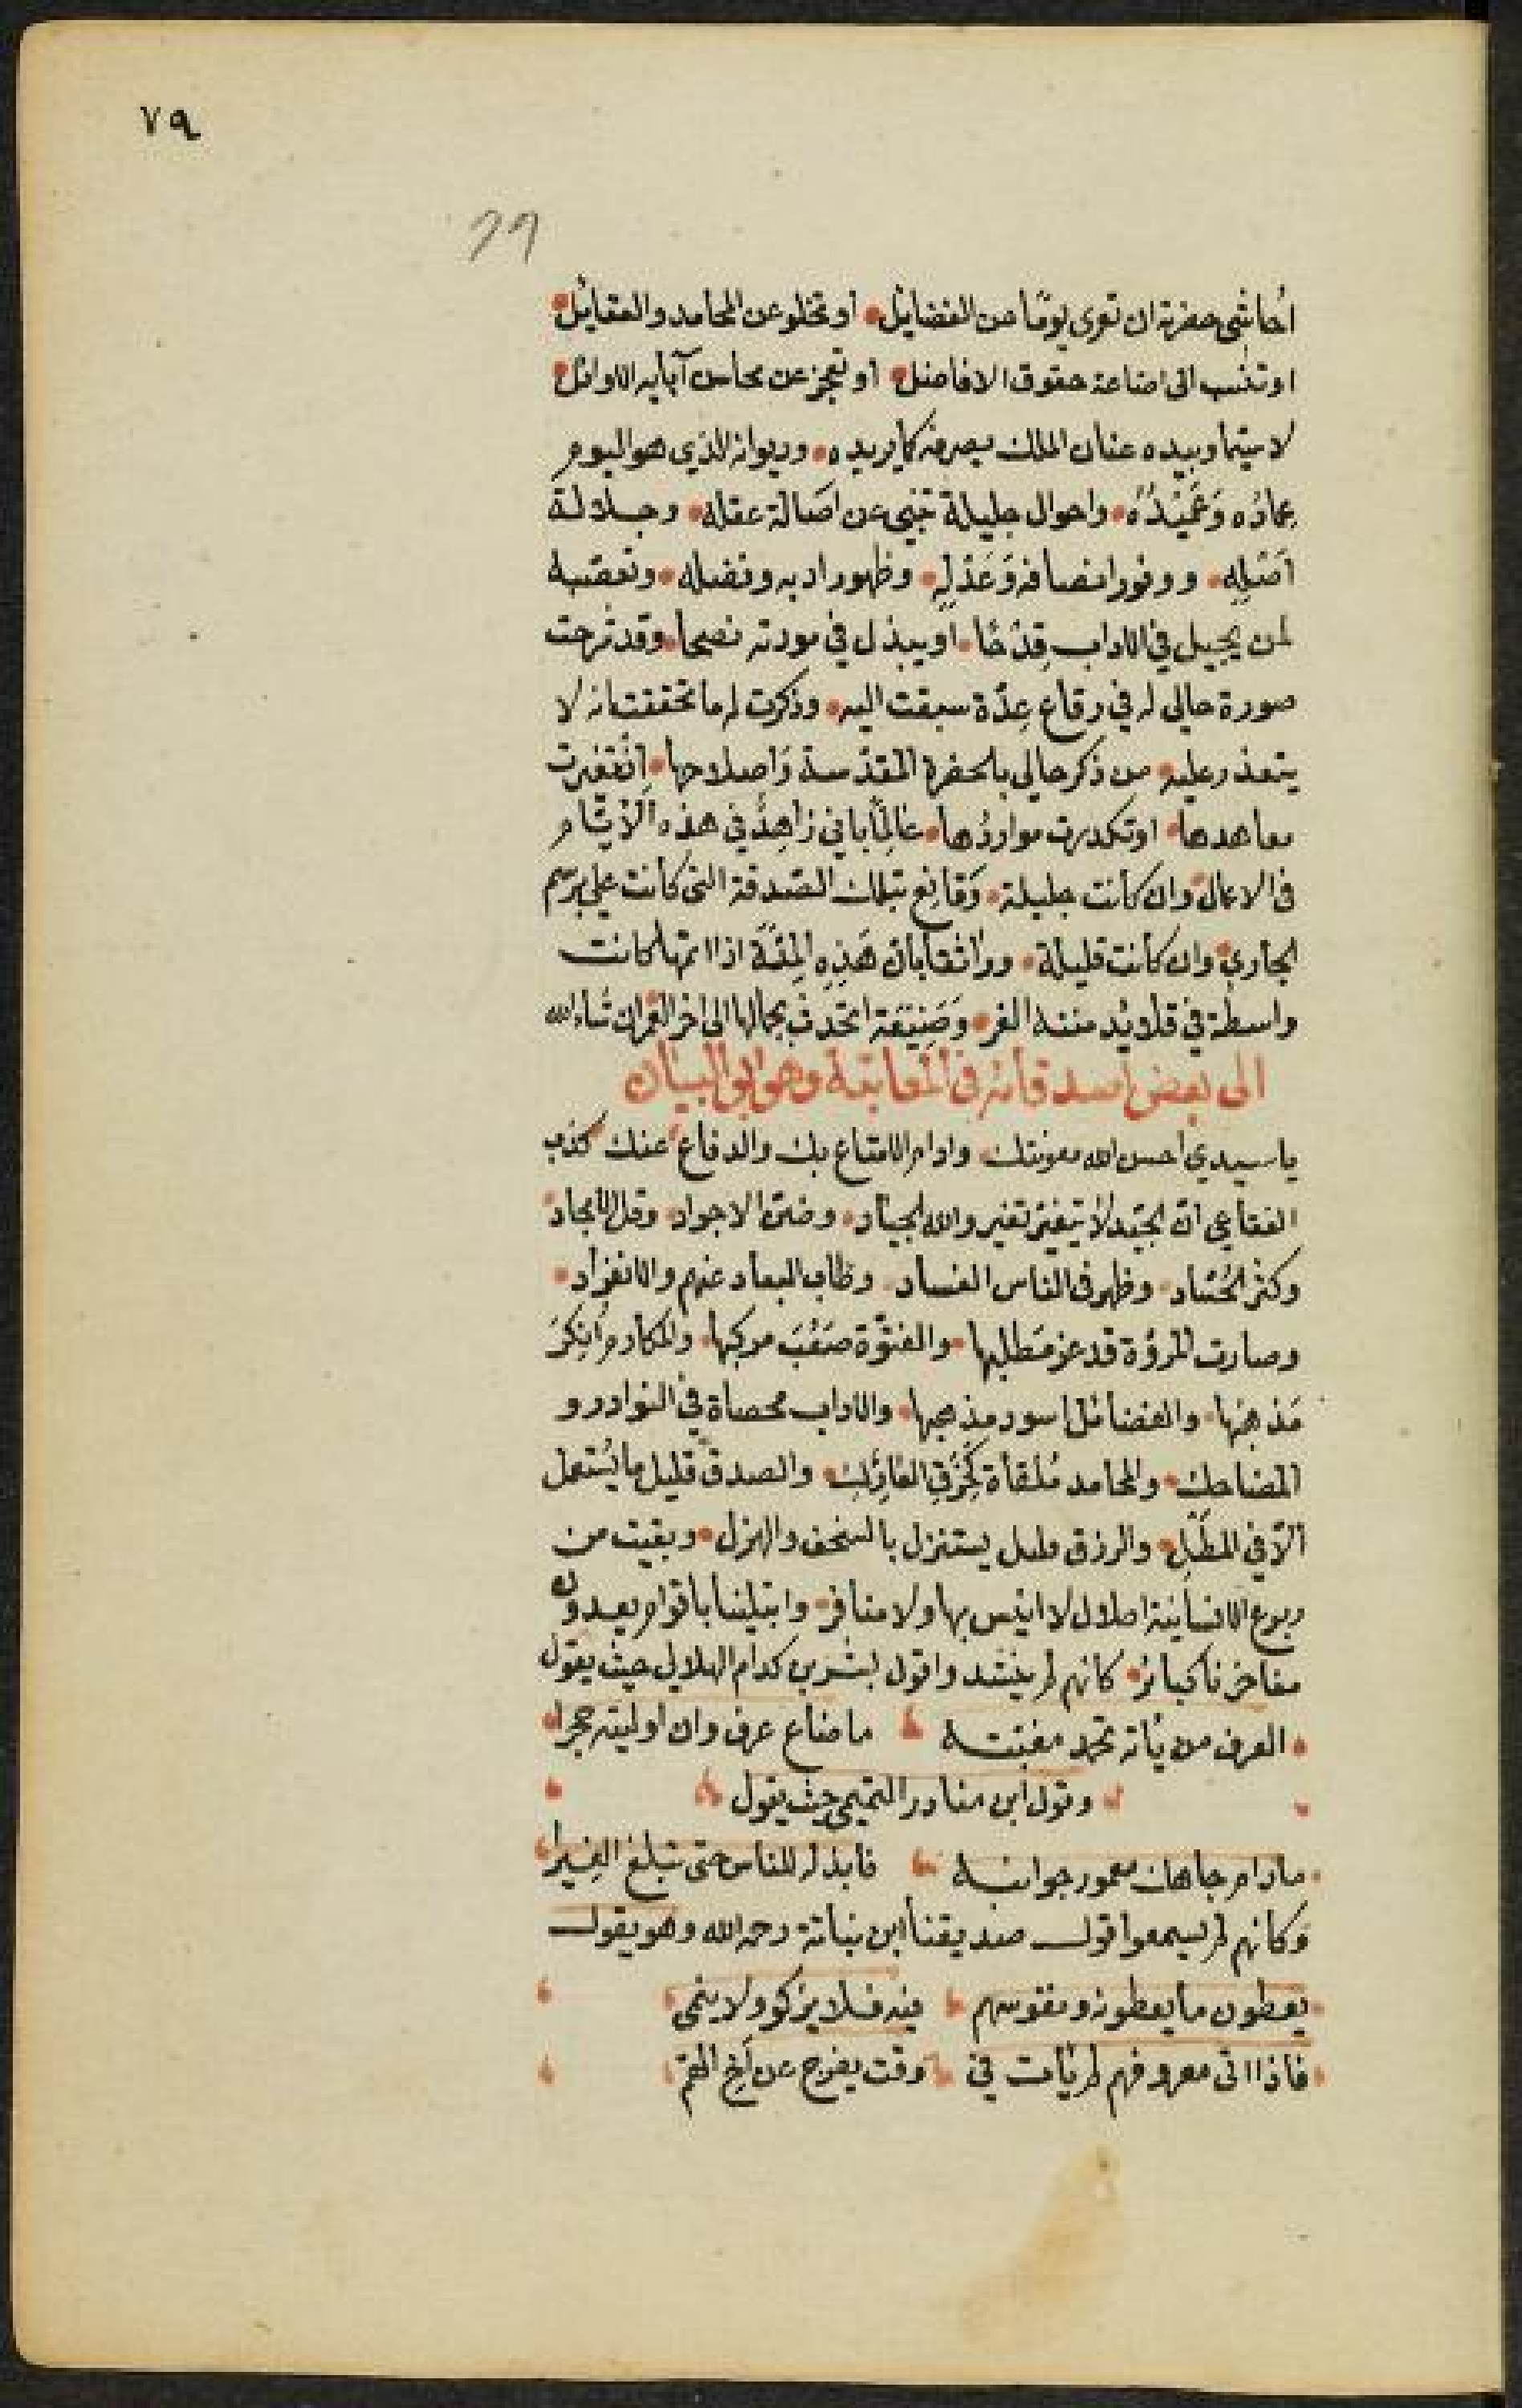 ٧٩
79
أحاشي حضرته ان تعرى يومًا من الفضائل أو تخلو عن المحامد والعقائل
او تنسب الى اضاعة حقوق الافاضل أو تعجز عن محاسن آبائه الاوائل
لا سيّما وبيده عنان الملك يصرفه كما يريده وديوانه الذي هو اليوم
عمادُه وَعَميْدُهُ واحوال جليلة تنبي عن اصَالة عقله وجلالة
أَصْلِهِ ووفور انصافه وَعَدْلِهِ وظهور ادبه وفضله وتعصّبه
لمن يجيل في الاداب قِدْحًا أو يبذل في مودته نصحاً وقد شرحت
صورة حالي له في رقاع عِدّة سبقت اليه وذكرت له ما تحققت انه لا
يتعذر عليه من ذكر حالي بالحضرة المقدّسة وَاصلاحها ان تغيرت
معاهدها او تكدرت مواردُها عالِمًا باني زاهِدٌ في هذه الأيّام
في الاعمال وان كانت جليلة وَقانِع بتلك الصّدقة التي كانت علي برسم
الجاري وان كانت قليلة وواثقاً بأن هَذِهِ المِنّة اذا اتمها كانت
واسطة في قلايد مننه الغر وَصَنِيْعَة اتحدث بجمالها الى اخر العمر ان شاء الله
الى بعض أصدقائه في المعاتبة وهو ابو البيان
يا سيدي احسن الله معونتك وادام الامتاع بك والدفاع عنك كذب
القفاعي انّ الجيّد لا يتغير تغير والله الجياد وضنّ الاجواد وقل الأنجاد
وكثر الحُسّاد وظهر في الناس الفساد وطاب البعاد عنهم والانفراد
وصارت المروّة قد عز مَطلبها والفتوّة صَعُبَ مركبها والمكارم أنكِرَ
مَذهبُها والفضائل اسود مذهبها والاداب محصاة في النوادر و
المضاحك والمحامد مُلقاة كَخِرَقِ العَارِكِ والصدق قليل ما يُستعمل
الّا في المطَلِ والرزق قليل يستنزل بالسخف والهزل وبقيت من
ربوع الانسانية اطلال لا انيس بها ولا منافر وابتلينا باقوام يعدون
مفاخرنا كبائر كانهم لم ينشدوا قول بشر بن كدام الهلالي حيث يقول
العرف من يأته تحمد مغبّته ما ضاع عرف وان اوليته حجرا
وقول ابن مناذر التميمي حيث يقول
مادام جاهك معمور جوانبه فابذله للناس حتى تبلغ الغِيَرا
وَكأنهم لم يسمعوا قول صديقنا ابن نباتة رحمه الله وهو يقول
يعطون ما يعطونه ونفوسهم فيه فلا يزكو ولا ينمى
فاذا اتى معروفهم لم يأت في وقت يفرج عن أخ الهمّ